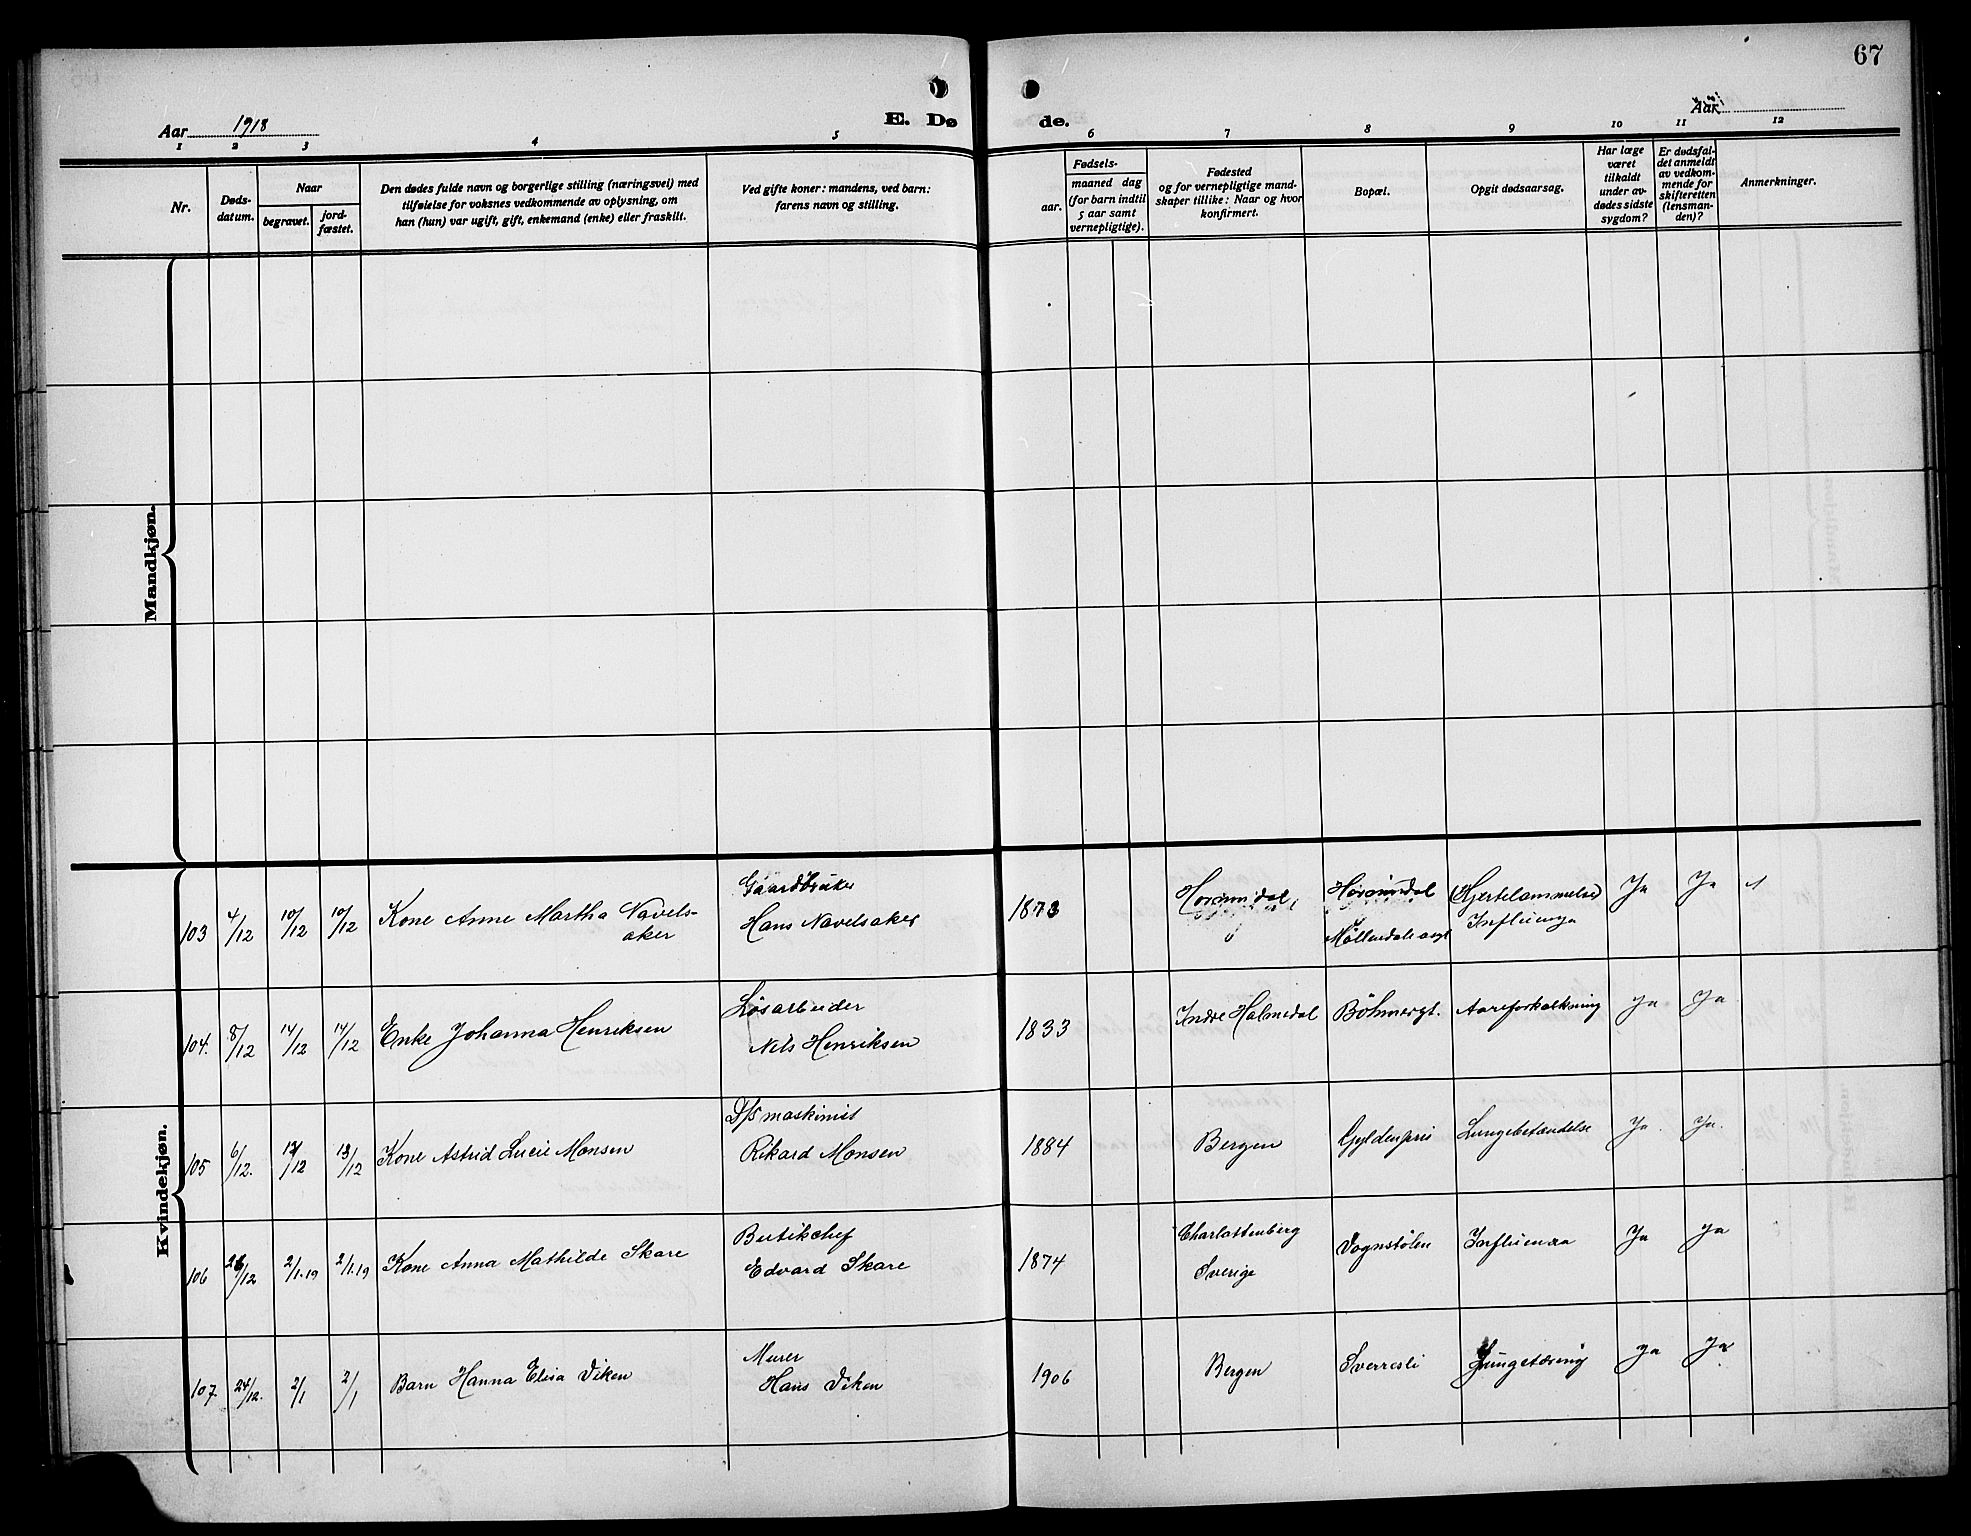 67
Aar 1918
E. Dø
de.
Aar
1 2 3 4 5 6 7 8 9 10 11 12
Nr.
Døds-
datum.
Naar
begravet.
jord-
fæstet.
Den dødes fulde navn og borgerlige stilling (næringsvei) med
tilføielse for voksnes vedkommende av oplysning, om
han (hun) var ugift, gift, enkemand (enke) eller fraskilt.
Ved gifte koner: mandens, ved barn:
farens navn og stilling.
Fødsels-
aar.
maaned dag
(for barn indtil
5 aar samt
vernepligtige).
Fødested
og for vernepligtige mand-
skaper tillike: Naar og hvor
konfirmert.
Bopæl.
Opgit dødsaarsag.
Har læge
været
tilkaldt
under av-
dødes sidste
sygdom?
Er dødsfal-
det anmeldt
av vedkom-
mende for
skifteretten
(lensman-
den)?
Anmerkninger.
Mandkjøn.
Kvindekjøn.
103 4/12 10/12 10/12 Kone Anne Martha Navels-
aker
Gaardbruker
Hans Navelsaker
1873
Hornindal,
Hornindal
Möllendalsvegt
Hjertelammelse
Influenza
Ja Ja
104. 8/12 14/12 14/12 Enke Johanna Henriksen
Løsarbeider
Nils Henriksen
1833 Indre Holmedal Böhmergt. Aareforkalkning Ja Ja
105 6/12. 12/12 13/12 Kone Astrid Lucie Monsen
D/s maskinist
Rikard Monsen
1884 Bergen Gyldenpris Lungebetændelse Ja. Ja.
106 26/12 2/1.19 2/1.19 Kone Anna Mathilde Skare
Butikchef
Edvard Skare
1874
Charlottenberg
Sverige
Vognstølen Influenza Ja Ja
107. 24/12. 2/1 2/1 Barn Hanna Elisa Viken
Murer
Hans Viken
1906 Bergen Sverresli Lungetæring Ja Ja